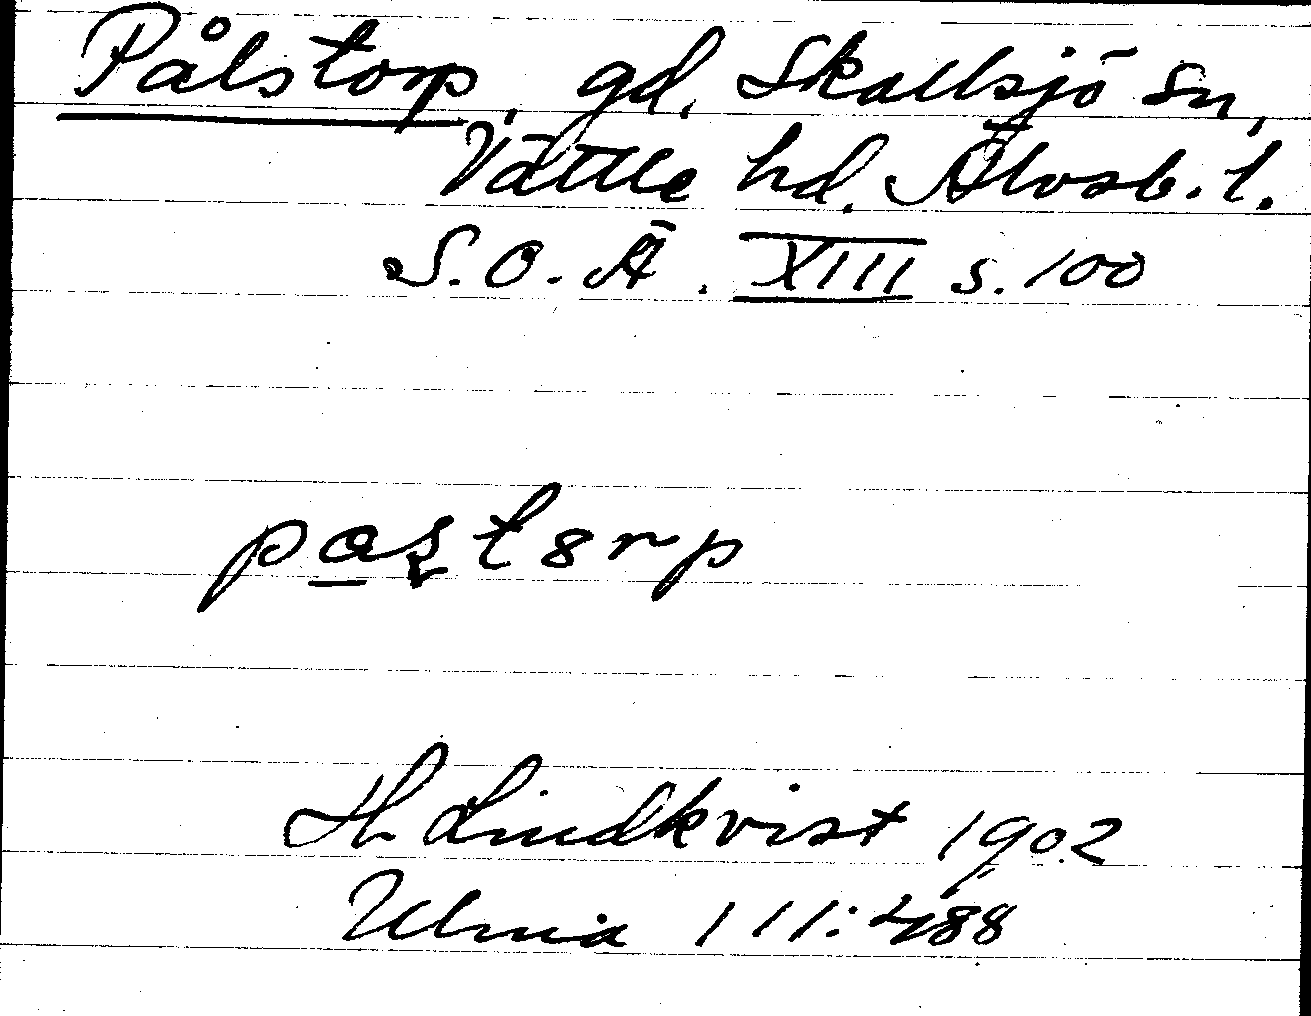 Pålstorp, gd. Skallsjö sn,
Vättle hd. Älvsb. l.
S.O.Ä. XIII s. 100
H Lindkvist 1902
Ulma 111:488